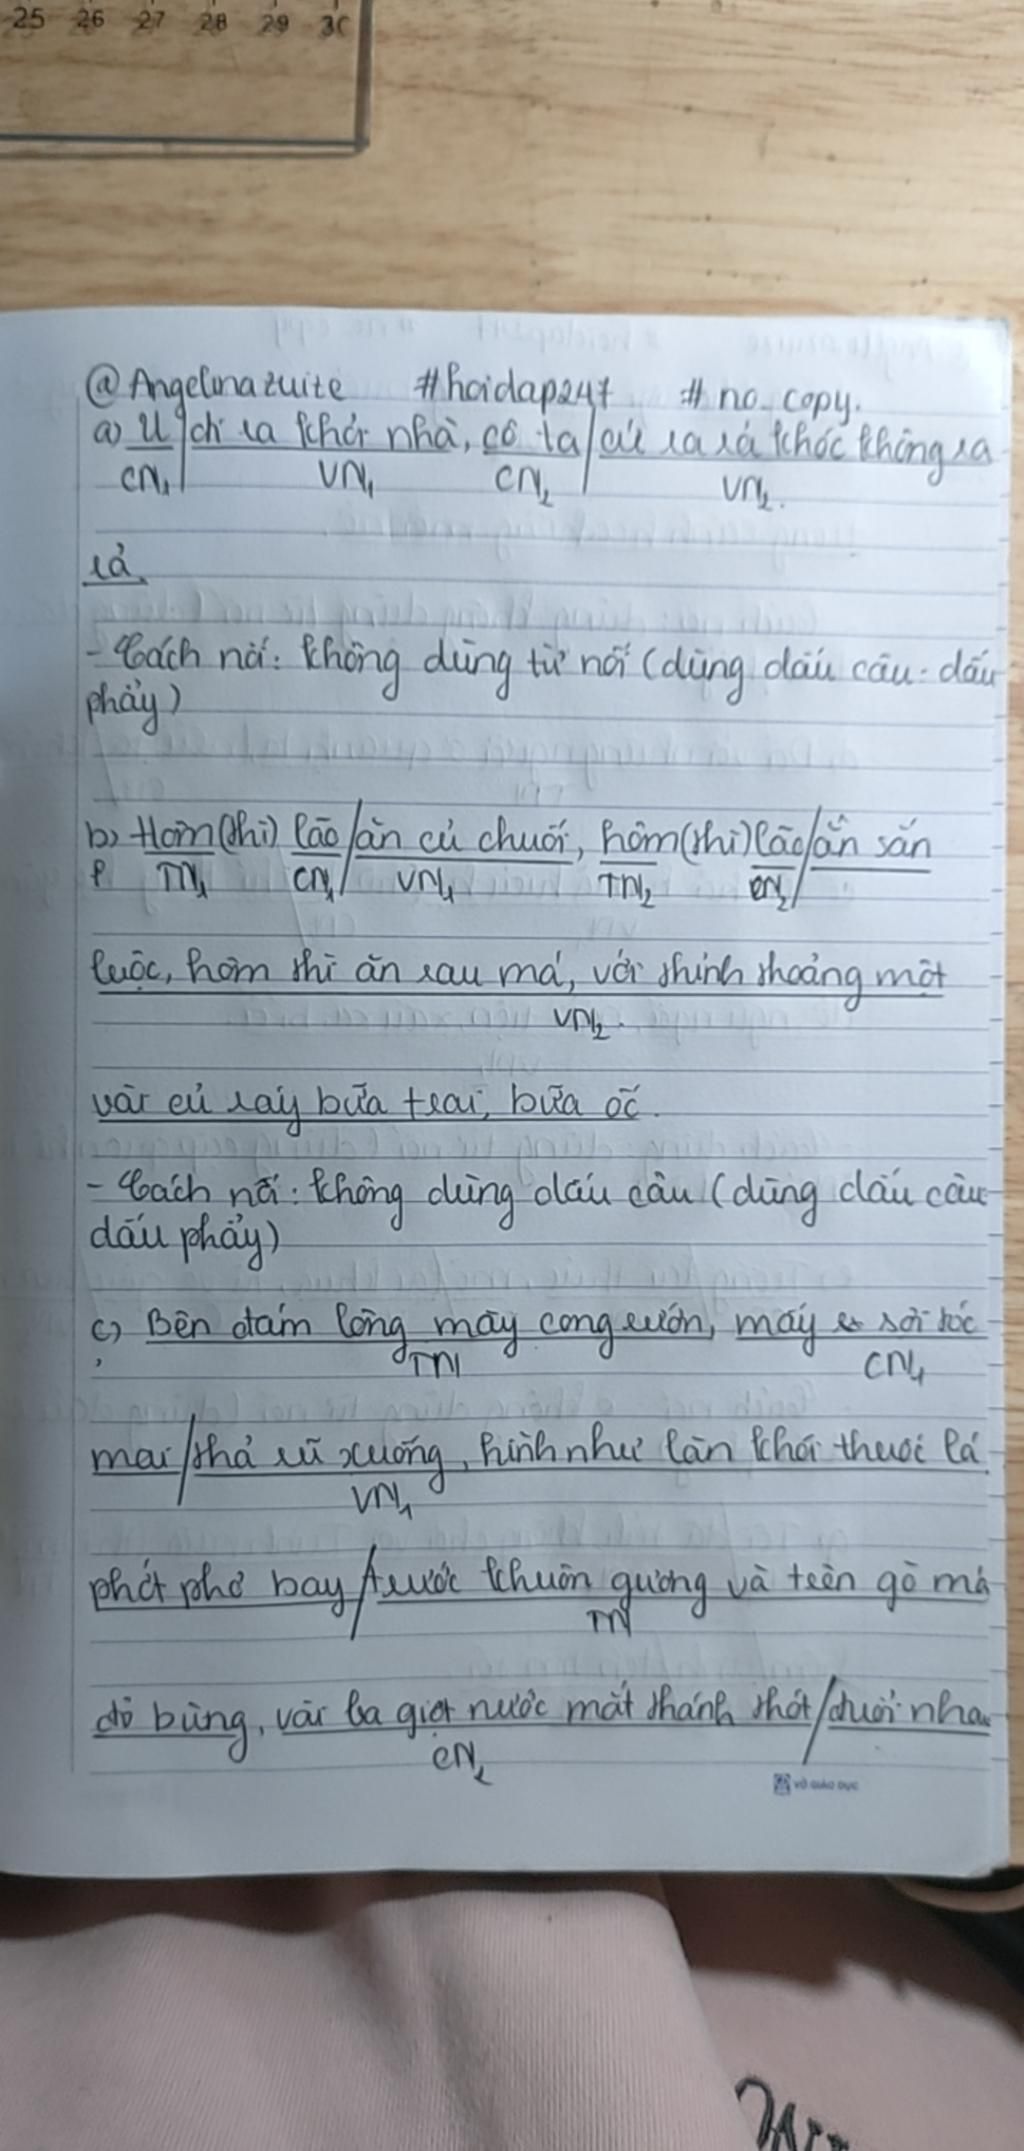 25 26 27 28 29 30
@Angelinazuite #hoidap247 #no_copy.
a) U/đi ra khỏi nhà, cô ta/cứ ra rả khóc không ra
CN1 VN1 CN2 VN2.
rả.
- Cách nối: không dùng từ nối (dùng dấu câu: dấu
phẩy)
b) Hôm(thì) lão/ăn củ chuối, hôm(thì) lão/ăn sắn
TN1 CN1 VN1 TN2 CN2
luộc, hôm thì ăn rau má, với thỉnh thoảng một
VN2.
vài củ ráy bữa trai, bữa ốc.
- Cách nối: không dùng dấu câu (dùng dấu câu
dấu phẩy)
c) Bên đám lông mày cong cuốn, mấy sợi tóc
TN1 CN1
mai/thả rũ xuống, hình như làn khói thuốc lá
VN1
phớt phơ bay/trước khuôn gương và trên gò má
TN
đỏ bừng, vài ba giọt nước mắt thánh thót/đuổi nhau
CN2
VỞ GIÁO DỤC